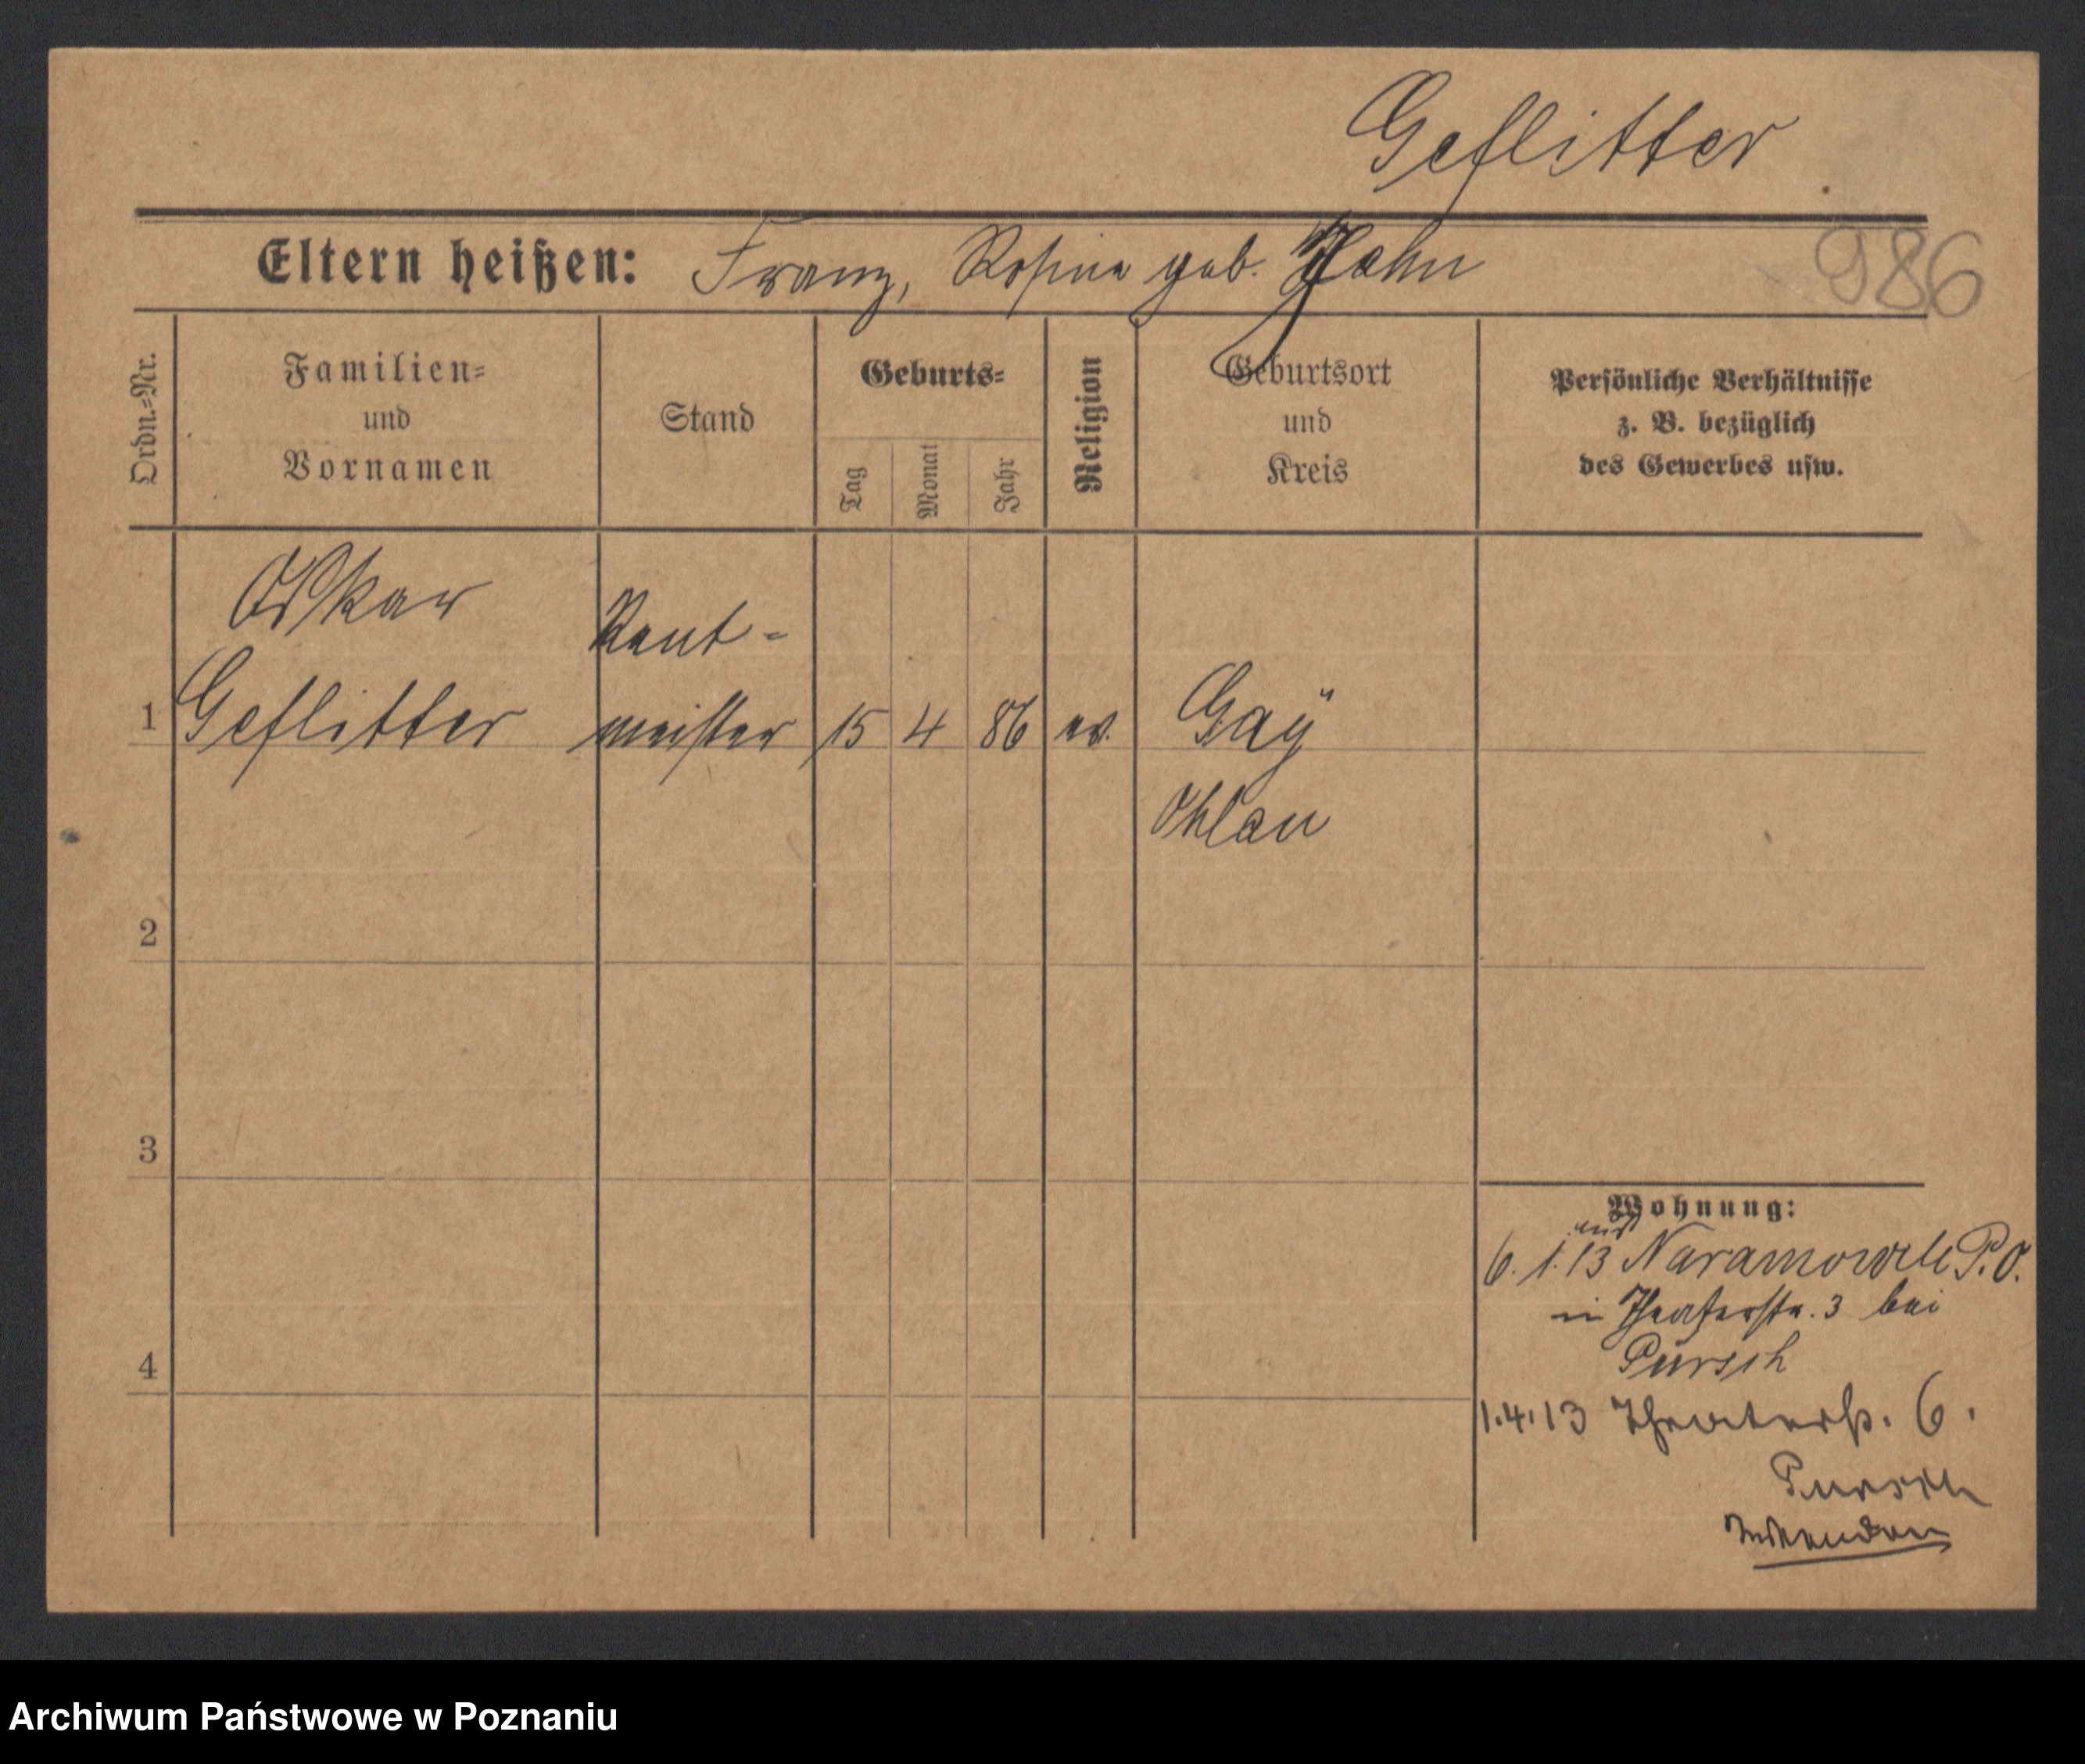 Geflitter
Eltern heißen: Franz, Rosina geb. Hahn
986
Ordn.-Nr.
Familien-
und
Vornamen
Stand
Geburts-
Tag
Monat
Jahr
Religion
Geburtsort
und
Kreis
Persönliche Verhältnisse
z. B. bezüglich
des Gewerbes usw.
Oskar
Rent-
1 Geflitter meister 15 4 86 ev. Gaÿ
Ohlau
2
3
4
Wohnung:
aus
6.1.13 Naramowice P.O.
in Theaterstr. 3 bei
Pursch
1.4.13 Theaterstr. 6.
Pursch
Archiwum Państwowe w Poznaniu